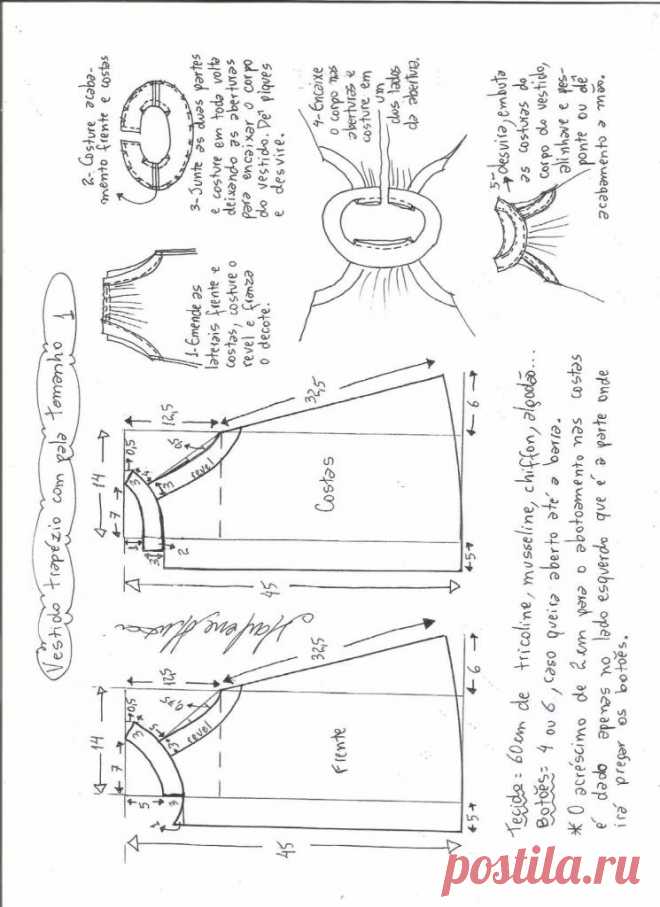 Vestido trapézio com pala tamanho 1
1-Emende as
laterais frente e
costas, costure o
revel e franza
o decote.
2- Costure acaba-
mento frente e costas
3-Junte as duas partes
e costure em toda volta
deixando as aberturas
para encaixar o corpo
do vestido. Dê piques
e desvire.
4-Encaixe
o corpo nas
aberturas e
costure em
um
dos lados
da abertura.
5-desvira, embuta
as costuras do
corpo do vestido,
alinhave e pes-
ponte ou dê
acabamento a mão.
14
7
0,5
12,5
32,5
3
5
3
0,5
revel
Frente
5
3
1
45
5
6
14
7
0,5
12,5
32,5
3
5
3
0,5
revel
Costas
1
3
2
45
5
6
Tecido = 60cm de tricoline, musseline, chiffon, algodão...
Botões = 4 ou 6, caso queira aberto até a barra.
* O acréscimo de 2cm para o abotoamento nas costas
é dado apenas no lado esquerdo que é a parte onde
irá pregar os botões.
postila.ru